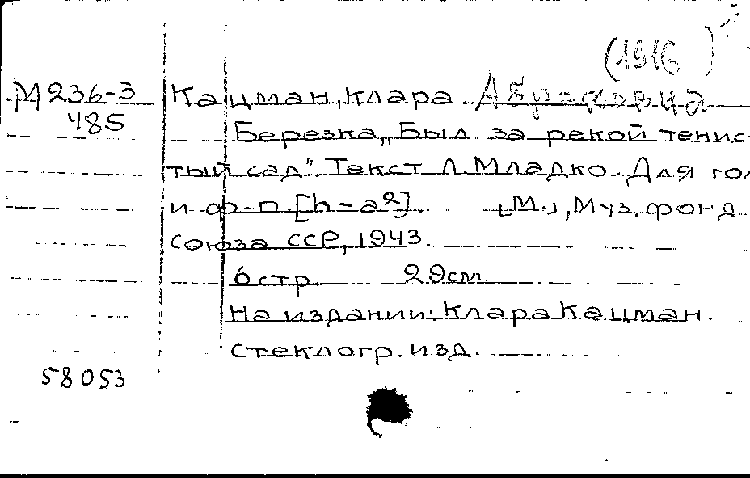 (1916)
М 236-3 Кацман, Клара Абрамовна
485 Березка, „Был за рекой тенис-
тый сад". Текст Л. Младко. Для гол.
и ф-п. [h-a²]. [М.], Муз. фонд
Союза ССР, 1943.
6 стр. 29 см
На издании: Клара Кацман.
Стеклогр. изд.
58053